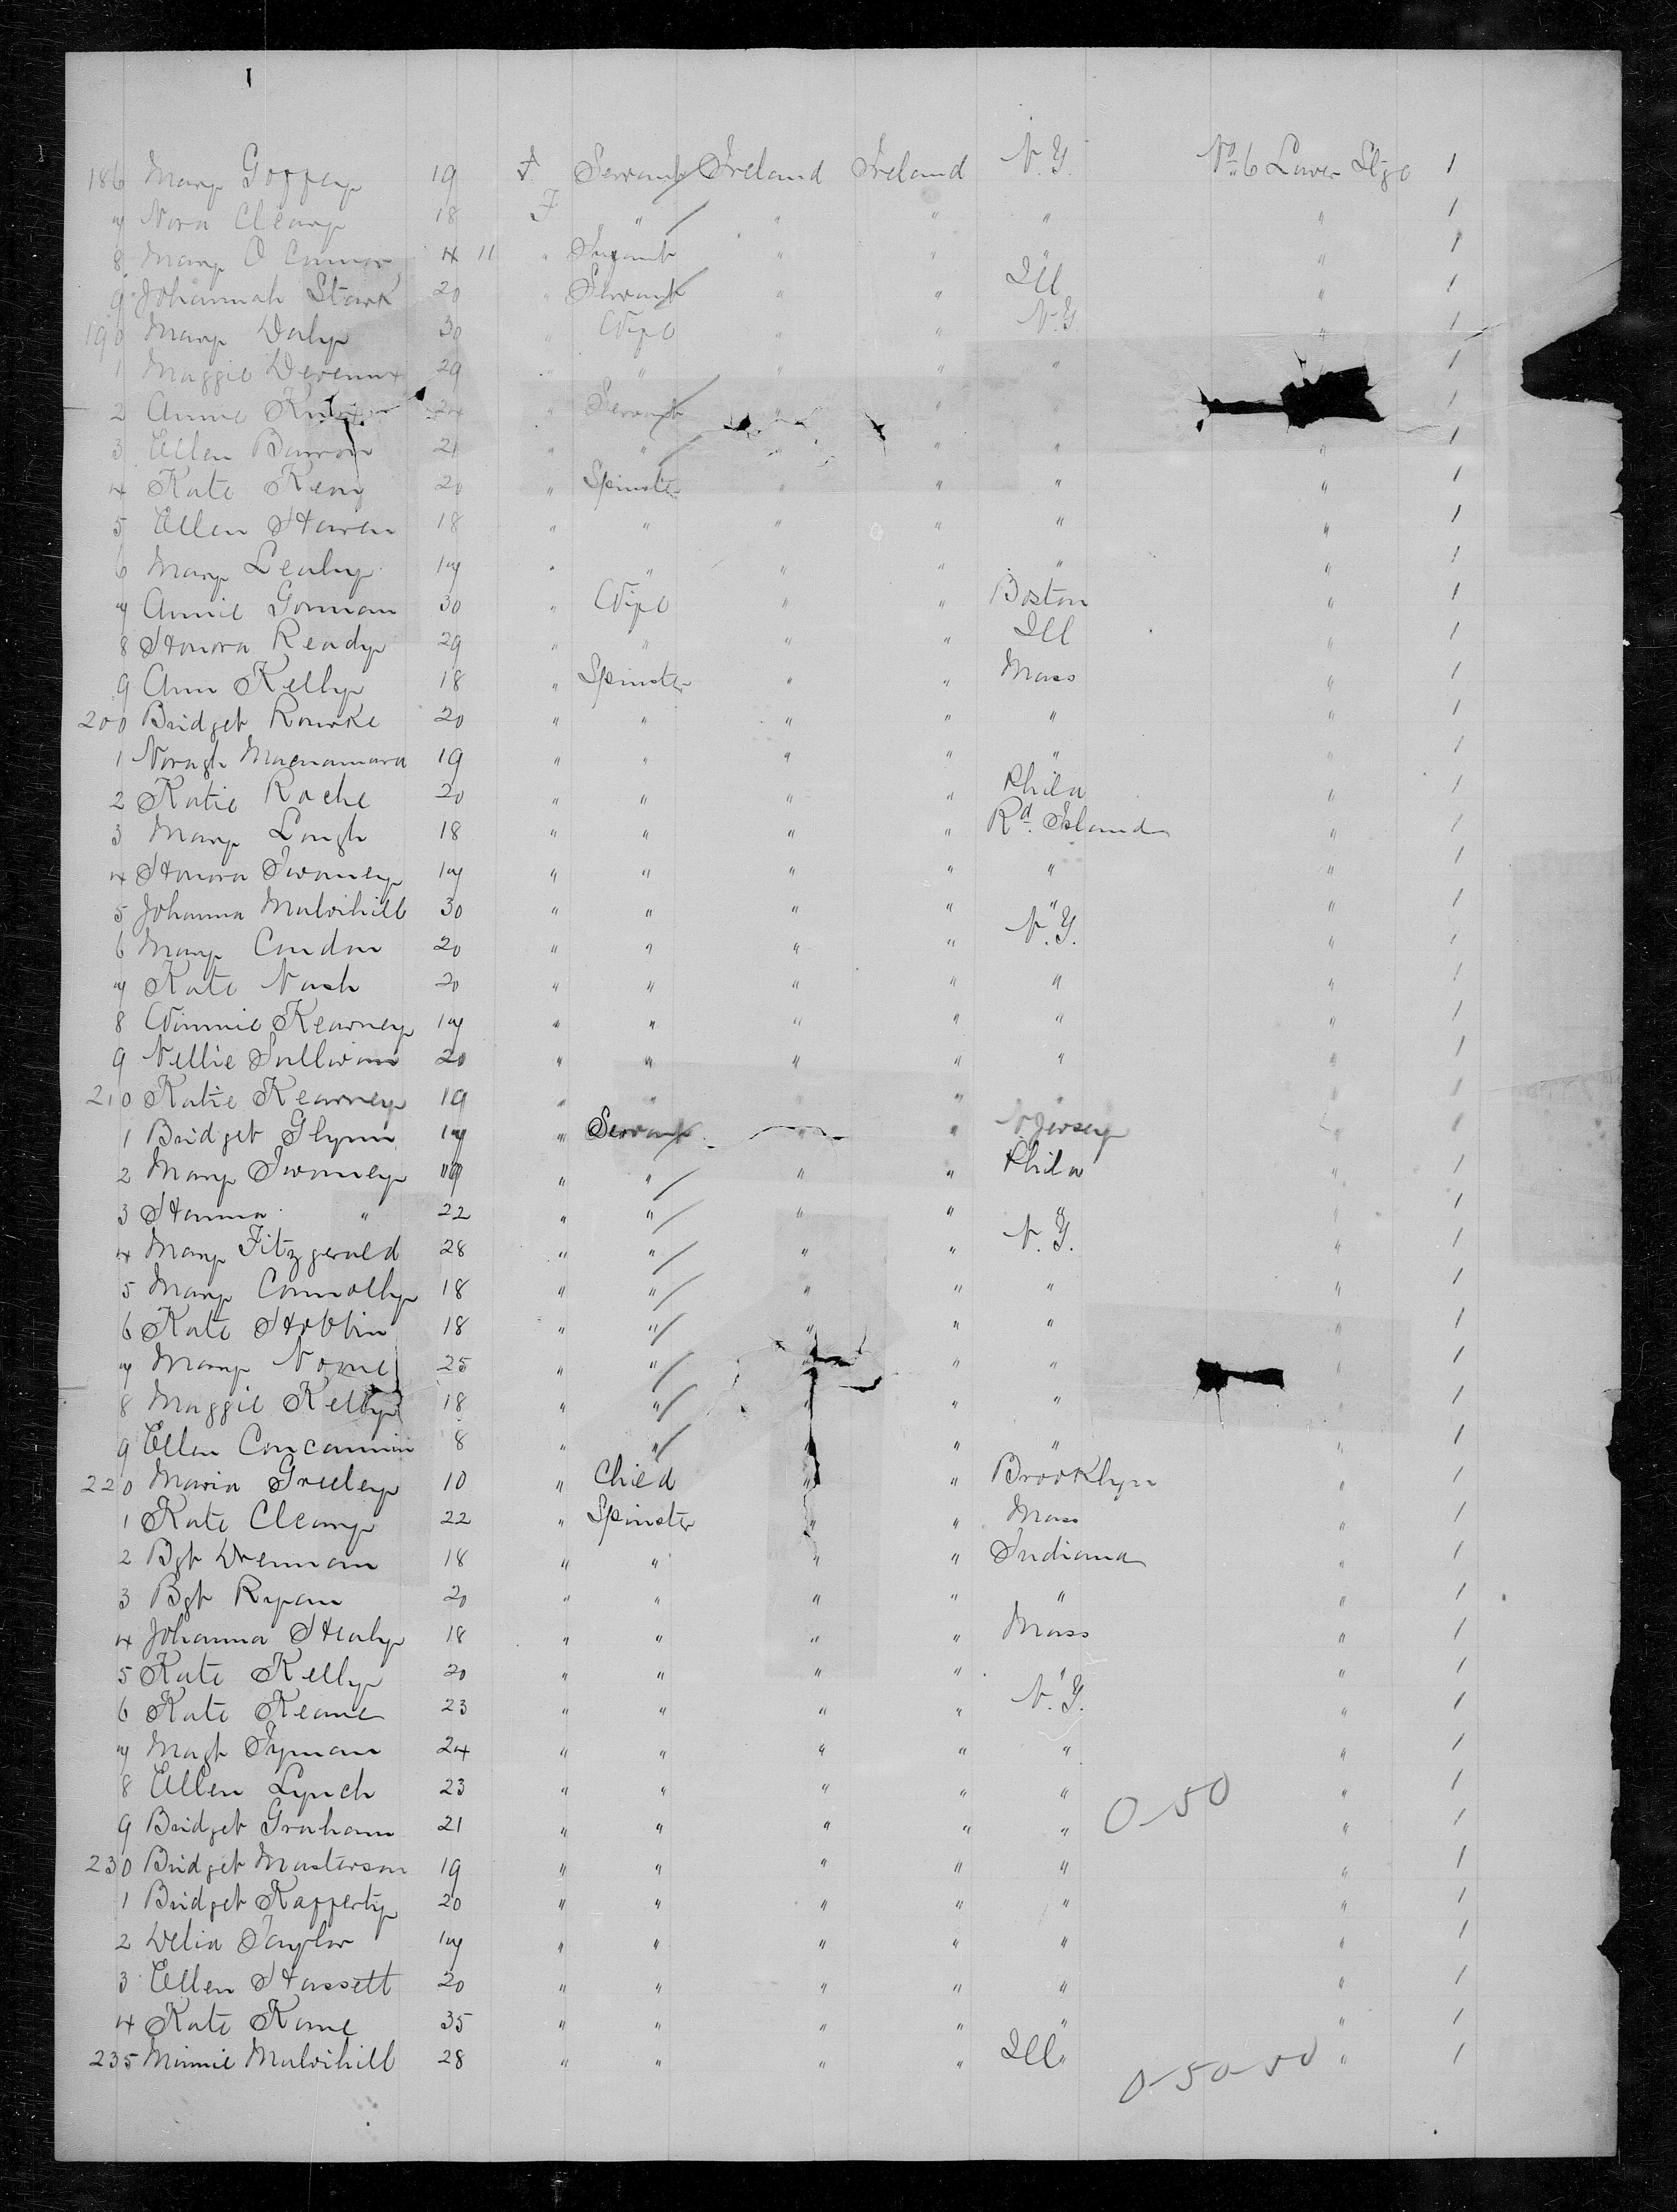 186 Mary Goffey 19 F Servant Ireland Ireland N.Y. No 6 Lower Stge 1
7 Nora Cleary 18 F " " " " " 1
8 Mary O Connor 4 11 " Infant " " " " 1
9 Johannah Stark 20 " Servant " " Ill " 1
190 Mary Daly 30 " Wife " " N.Y. " 1
1 Maggie Devenux 29 " " " " " 1
2 Annie 24 " Servant " " " 1
3 Ellen Barron 21 " " " " " " 1
4 Kate Keay 20 " Spinster " " " " 1
5 Ellen Haren 18 " " " " " " 1
6 Mary Leahy 17 " " " " " " 1
7 Annie Gorman 30 " Wife " " Boston " 1
8 Honora Ready 29 " " " " Ill " 1
9 Ann Kelly 18 " Spinster " " Mass " 1
200 Bridget Rourke 20 " " " " " " 1
1 Noragh Macnamara 19 " " " " " " 1
2 Katie Roche 20 " " " " Phila " 1
3 Mary Lough 18 " " " " Rd. Island " 1
4 Honora Twomey 17 " " " " " " 1
5 Johanna Mulvihill 30 " " " " " " 1
6 Mary Condon 20 " " " " N.Y. " 1
7 Kate Nash 20 " " " " " " 1
8 Winnie Kearney 17 " " " " " " 1
9 Nellie Sullivan 20 " " " " " " 1
210 Katie Kearney 19 " " " " " " 1
1 Bridget Glynn 17 " Servant " " N. Jersey " 1
2 Mary Twomey 19 " " " " Phila " 1
3 Hanna " 22 " " " " " " 1
4 Mary Fitzgerald 28 " " " " N.Y. " 1
5 Mary Connolly 18 " " " " " " 1
6 Kate Hobbin 18 " " " " " " 1
7 Mary Nome 25 " " " " " " 1
8 Maggie Kelly 18 " " " " " " 1
9 Ellen Concannin 8 " " " " " " 1
220 Maria Greeley 10 " Child " " Brooklyn " 1
1 Kate Cleary 22 " Spinster " " Mass " 1
2 Bgt Drennan 18 " " " " Indiana " 1
3 Bgt Ryan 20 " " " " " " 1
4 Johanna Healy 18 " " " " Mass " 1
5 Kate Kelly 20 " " " " " " 1
6 Kate Keane 23 " " " " N.Y. " 1
7 Magt Tynan 24 " " " " " " 1
8 Ellen Lynch 23 " " " " " 0-50 " 1
9 Bridget Graham 21 " " " " " " 1
230 Bridget Masterson 19 " " " " " " 1
1 Bridget Rafferty 20 " " " " " " 1
2 Delia Taylor 17 " " " " " " 1
3 Ellen Hassett 20 " " " " " " 1
4 Kate Kane 35 " " " " " " 1
235 Minnie Mulvihill 28 " " " " Ill " 1
0-50-50